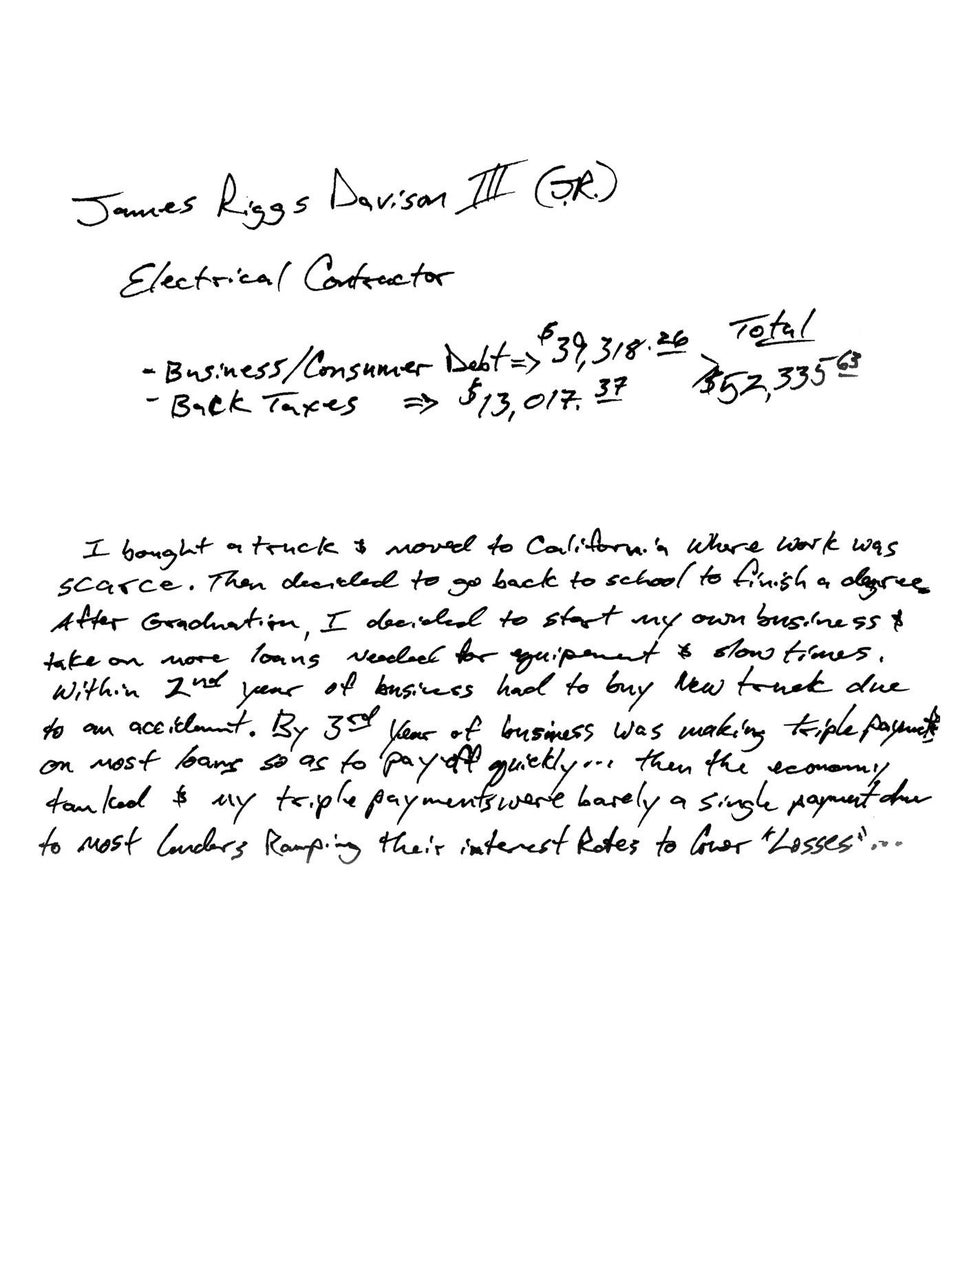 James Riggs Davison III (J.R.)
Electrical Contractor
- Business/Consumer Debt => $39,318.26
Total
- Back Taxes => $13,017.37 > $52,335 63
I bought a truck & moved to California where work was
scarce. Then decided to go back to school to finish a degree.
After Graduation, I decided to start my own business &
take on more loans needed for equipment & slow times.
Within 2nd year of business had to buy New truck due
to an accident. By 3rd year of business was making triple payments
on most loans so as to pay off quickly... then the economy
tanked & my triple payments were barely a single payment due
to most lenders Ramping their interest Rates to cover "Losses"...